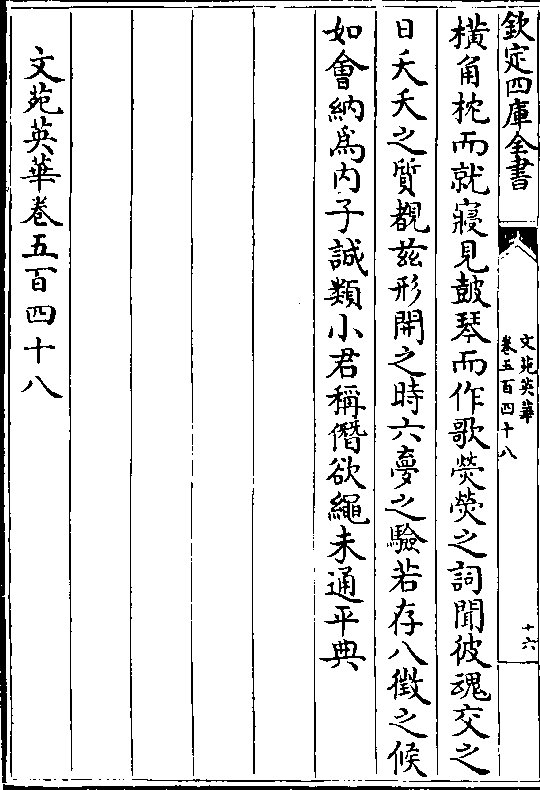 欽定四庫全書
文苑英華
卷五百四十八
十六
橫角枕而就寢見鼓琴而作歌熒熒之詞聞彼魂交之
日夭夭之質覩兹形開之時六夢之驗若存八徴之候
如會納為内子誠類小君稱僭欲繩未通平典
文苑英華卷五百四十八